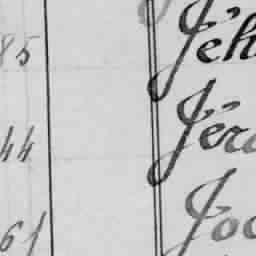 85 Jéh
44 Jéro
61 Joc